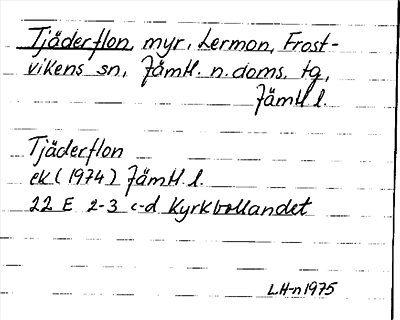 Tjäderflon, myr, Lermon, Frost-
vikens sn, Jämtl. n. doms. tg,
Jämtl l.
Tjäderflon
ek (1974) Jämtl. l.
22 E 2-3 c-d Kyrkbollandet
LH-n 1975